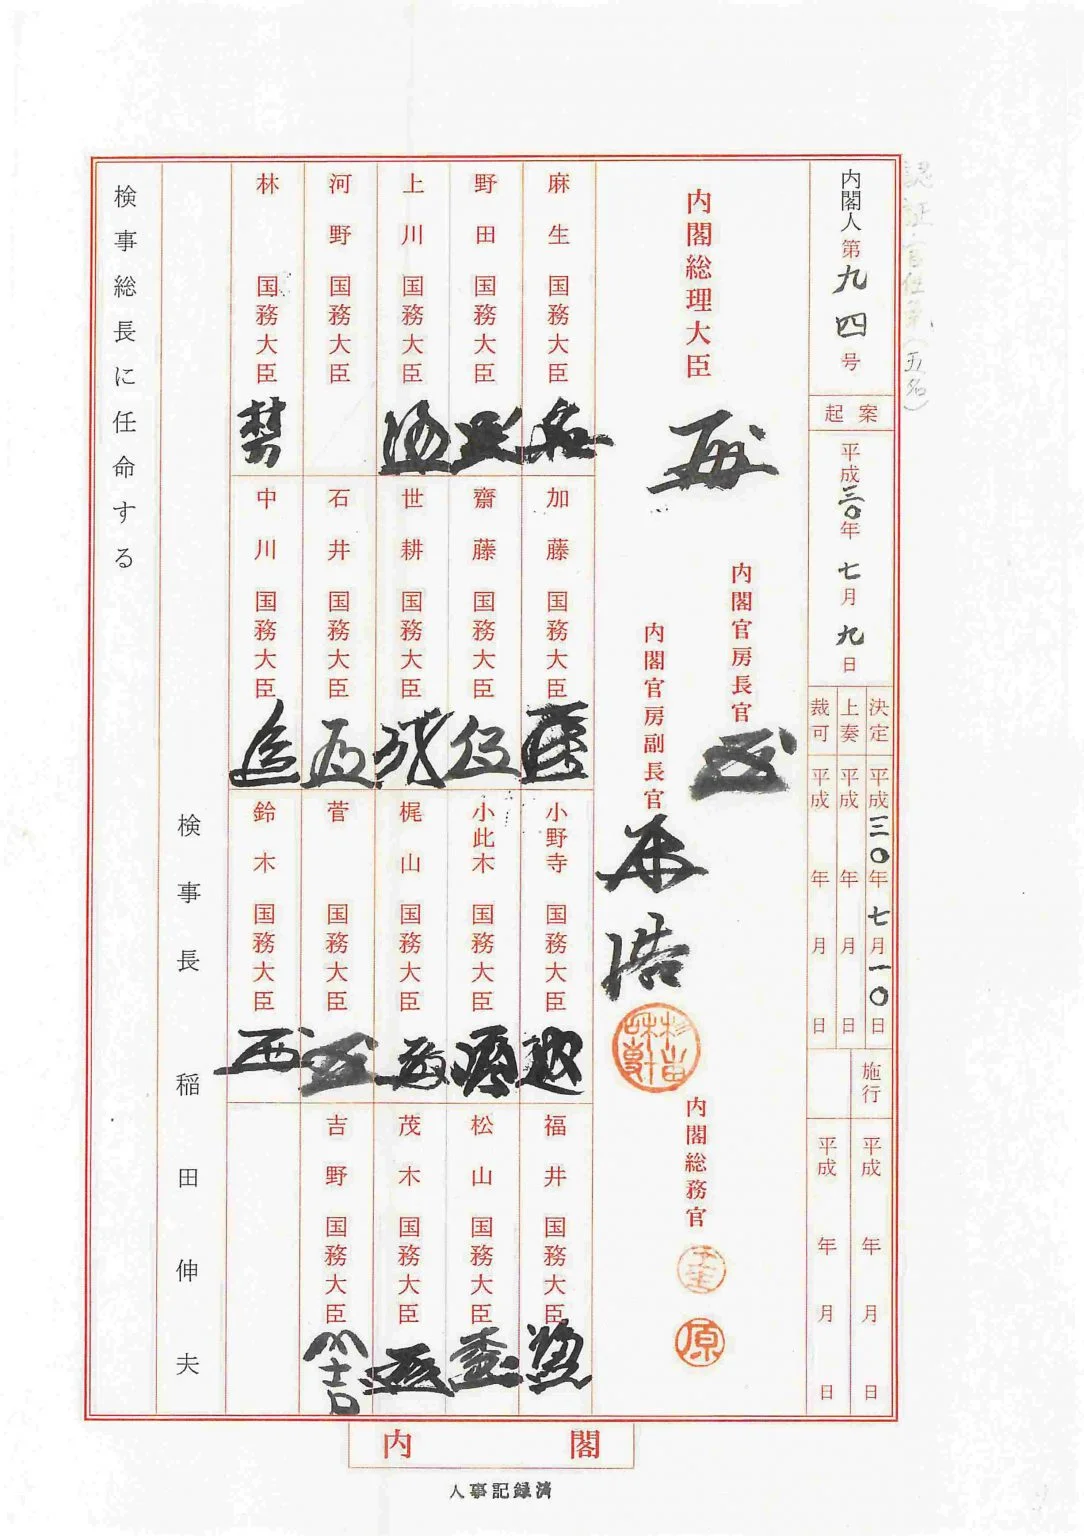 認証官任免(五名)
内閣人第九四号
起案
平成三〇年七月九日
決定 平成三〇年七月一〇日
上奏 平成 年 月 日
裁可 平成 年 月 日
施行 平成 年 月 日
平成 年 月 日
内閣総理大臣
内閣官房長官
内閣官房副長官
内閣総務官
原
麻生国務大臣
野田国務大臣
上川国務大臣
河野国務大臣
林国務大臣
加藤国務大臣
齋藤国務大臣
世耕国務大臣
石井国務大臣
中川国務大臣
小野寺国務大臣
小此木国務大臣
梶山国務大臣
菅国務大臣
鈴木国務大臣
福井国務大臣
松山国務大臣
茂木国務大臣
吉野国務大臣
検事長 稲田伸夫
検事総長に任命する
内閣
人事記録済